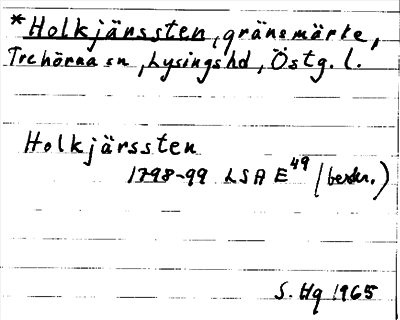 *Holkjärssten, gränsmärke,
Trehörna sn, Lysings hd, Östg. l.
Holkjärssten
1798-99 LSA E49 (beskr.)
S. Hq 1965